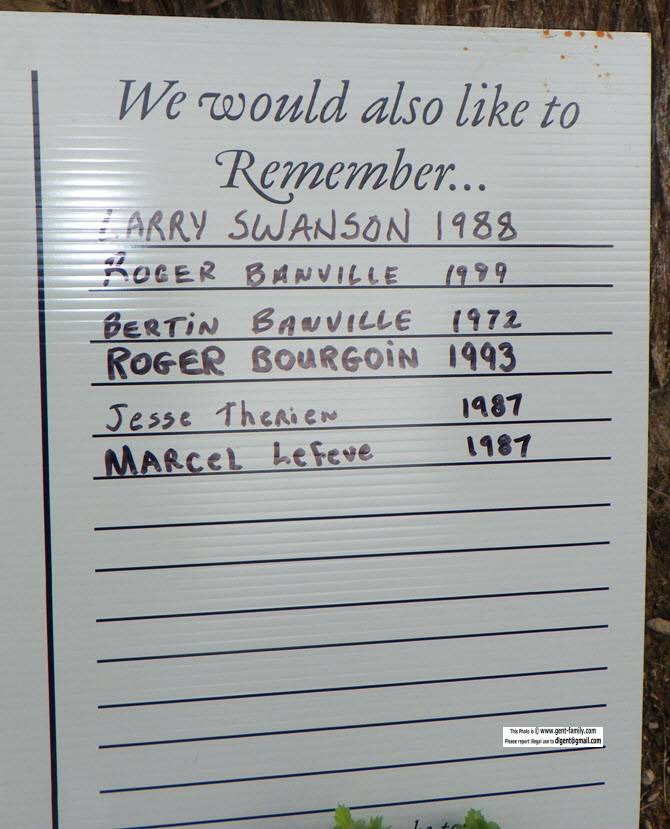 We would also like to
Remember...
LARRY SWANSON 1988
ROGER BANVILLE 1999
BERTiN BANVILLE 1972
ROGER BOURGOiN 1993
Jesse Therien 1987
MARCEL LeFeve 1987
This Photo is © www.gent-family.com
Please report illegal use to digent@gmail.com